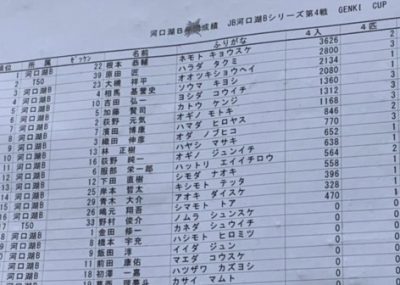 河口湖B 成績 JB河口湖Bシリーズ第4戦 GENKI CUP
順位 所属 ゼッケン 名前 ふりがな 4人 4匹
1 河口湖B 22 根本 恭輔 ネモト キョウスケ 3626 2
T50 39 原田 匠 ハラダ タクミ 2800 3
河口湖B 23 大磯 祥平 オオツキショウヘイ 3134 1
河口湖B 4 相馬 基誉史 ソウマ キヨシ 2080 1
河口湖B 10 吉田 弘一 ヨシダ コウイチ 1358 3
河口湖B 5 加藤 賢司 カトウ ケンジ 1312 3
河口湖B 2 荻野 元気 オギノ モトキ 1168 2
河口湖B 7 濱田 博康 ハマダ ヒロヤス 846 3
河口湖B 3 織田 伸彦 オダ ノブヒコ 770 1
10 河口湖B 13 林 正樹 ハヤシ マサキ 652 1
河口湖B 16 荻野 純一 オギノ ジュンイチ 638
河口湖B 6 服部 栄一郎 ハットリ エイイチロウ 564 1
河口湖B 12 下田 直樹 シモダ ナオキ 558 1
14 河口湖B 25 岸本 哲太 キシモト テッタ 356 1
15 河口湖B 29 青木 大介 アオキ ダイスケ 328 1
河口湖B 26 嶋元 翔吾 シマモト 470 1
17 T50 33 野村 俊介 ノムラ シュンスケ 0
河口湖B 1 金田 修一 カネダ シュウイチ 0
河口湖B 8 橋本 宇充 ハシモト ヒロミツ 0
河口湖B 9 飯田 淳 イイダ ジュン 0
河口湖B 11 前田 康佑 マエダ コウスケ 0
河口湖B 18 初澤 一嘉 ハツザワ カズヨシ 0
河口湖B 19 カサイ マムト 0